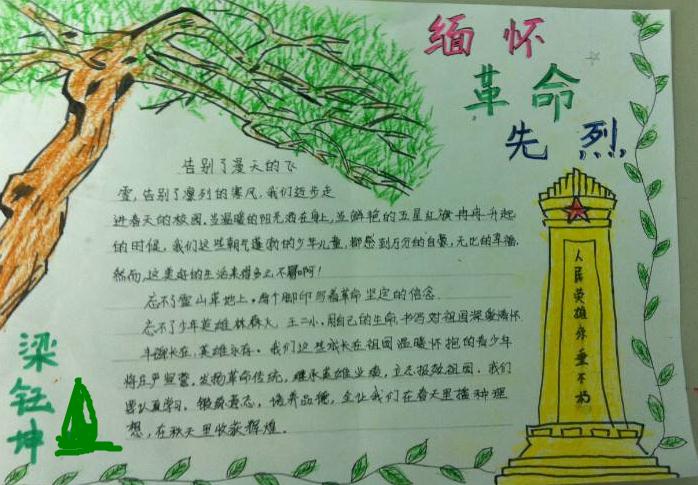 缅怀
革命
先烈
告别了漫天的飞
雪,告别了凛列的寒风,我们迈步走
进春天的校园。当温暖的阳光洒在身上,当鲜艳的五星红旗冉冉升起
的时候,我们这些朝气蓬勃的少年儿童,都感到万分的自豪,无比的幸福,
然而,这美好的生活来得多么不易啊!
忘不了雪山草地上,每个脚印写着革命坚定的信念
忘不了少年英雄林森火、王二小,用自己的生命书写对祖国深爱情怀
丰碑长在,英雄永存。我们这些成长在祖国温暖怀抱的青少年
将庄严宣誓,发扬革命传统,继承英雄业绩,立志报效祖国。我们
要认真学习,锻炼意志,培养品德,会让我们在春天里播种理
想,在秋天里收获辉煌。
人民英雄永垂不朽
梁钰坤